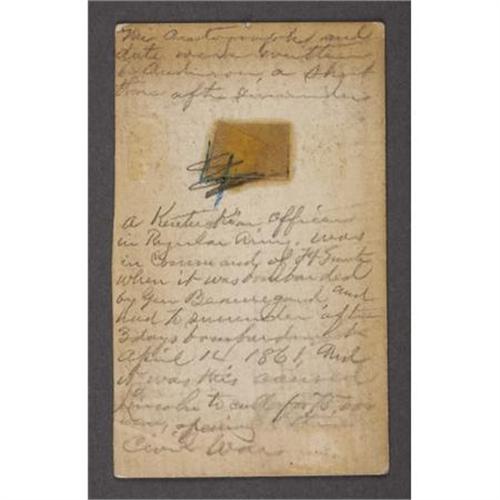 This Autograph and
date were written
by Anderson, a short
time after surrender
A Kentuckian officer
in Regular Army, was
in Command, of Ft Sumter
when it was bombarded
by Gen Beauregard, and
had to surrender after
3 days bombardment
April 14 1861, And
it was this caused
Lincoln to call for 75,000
men, opening
Civil War